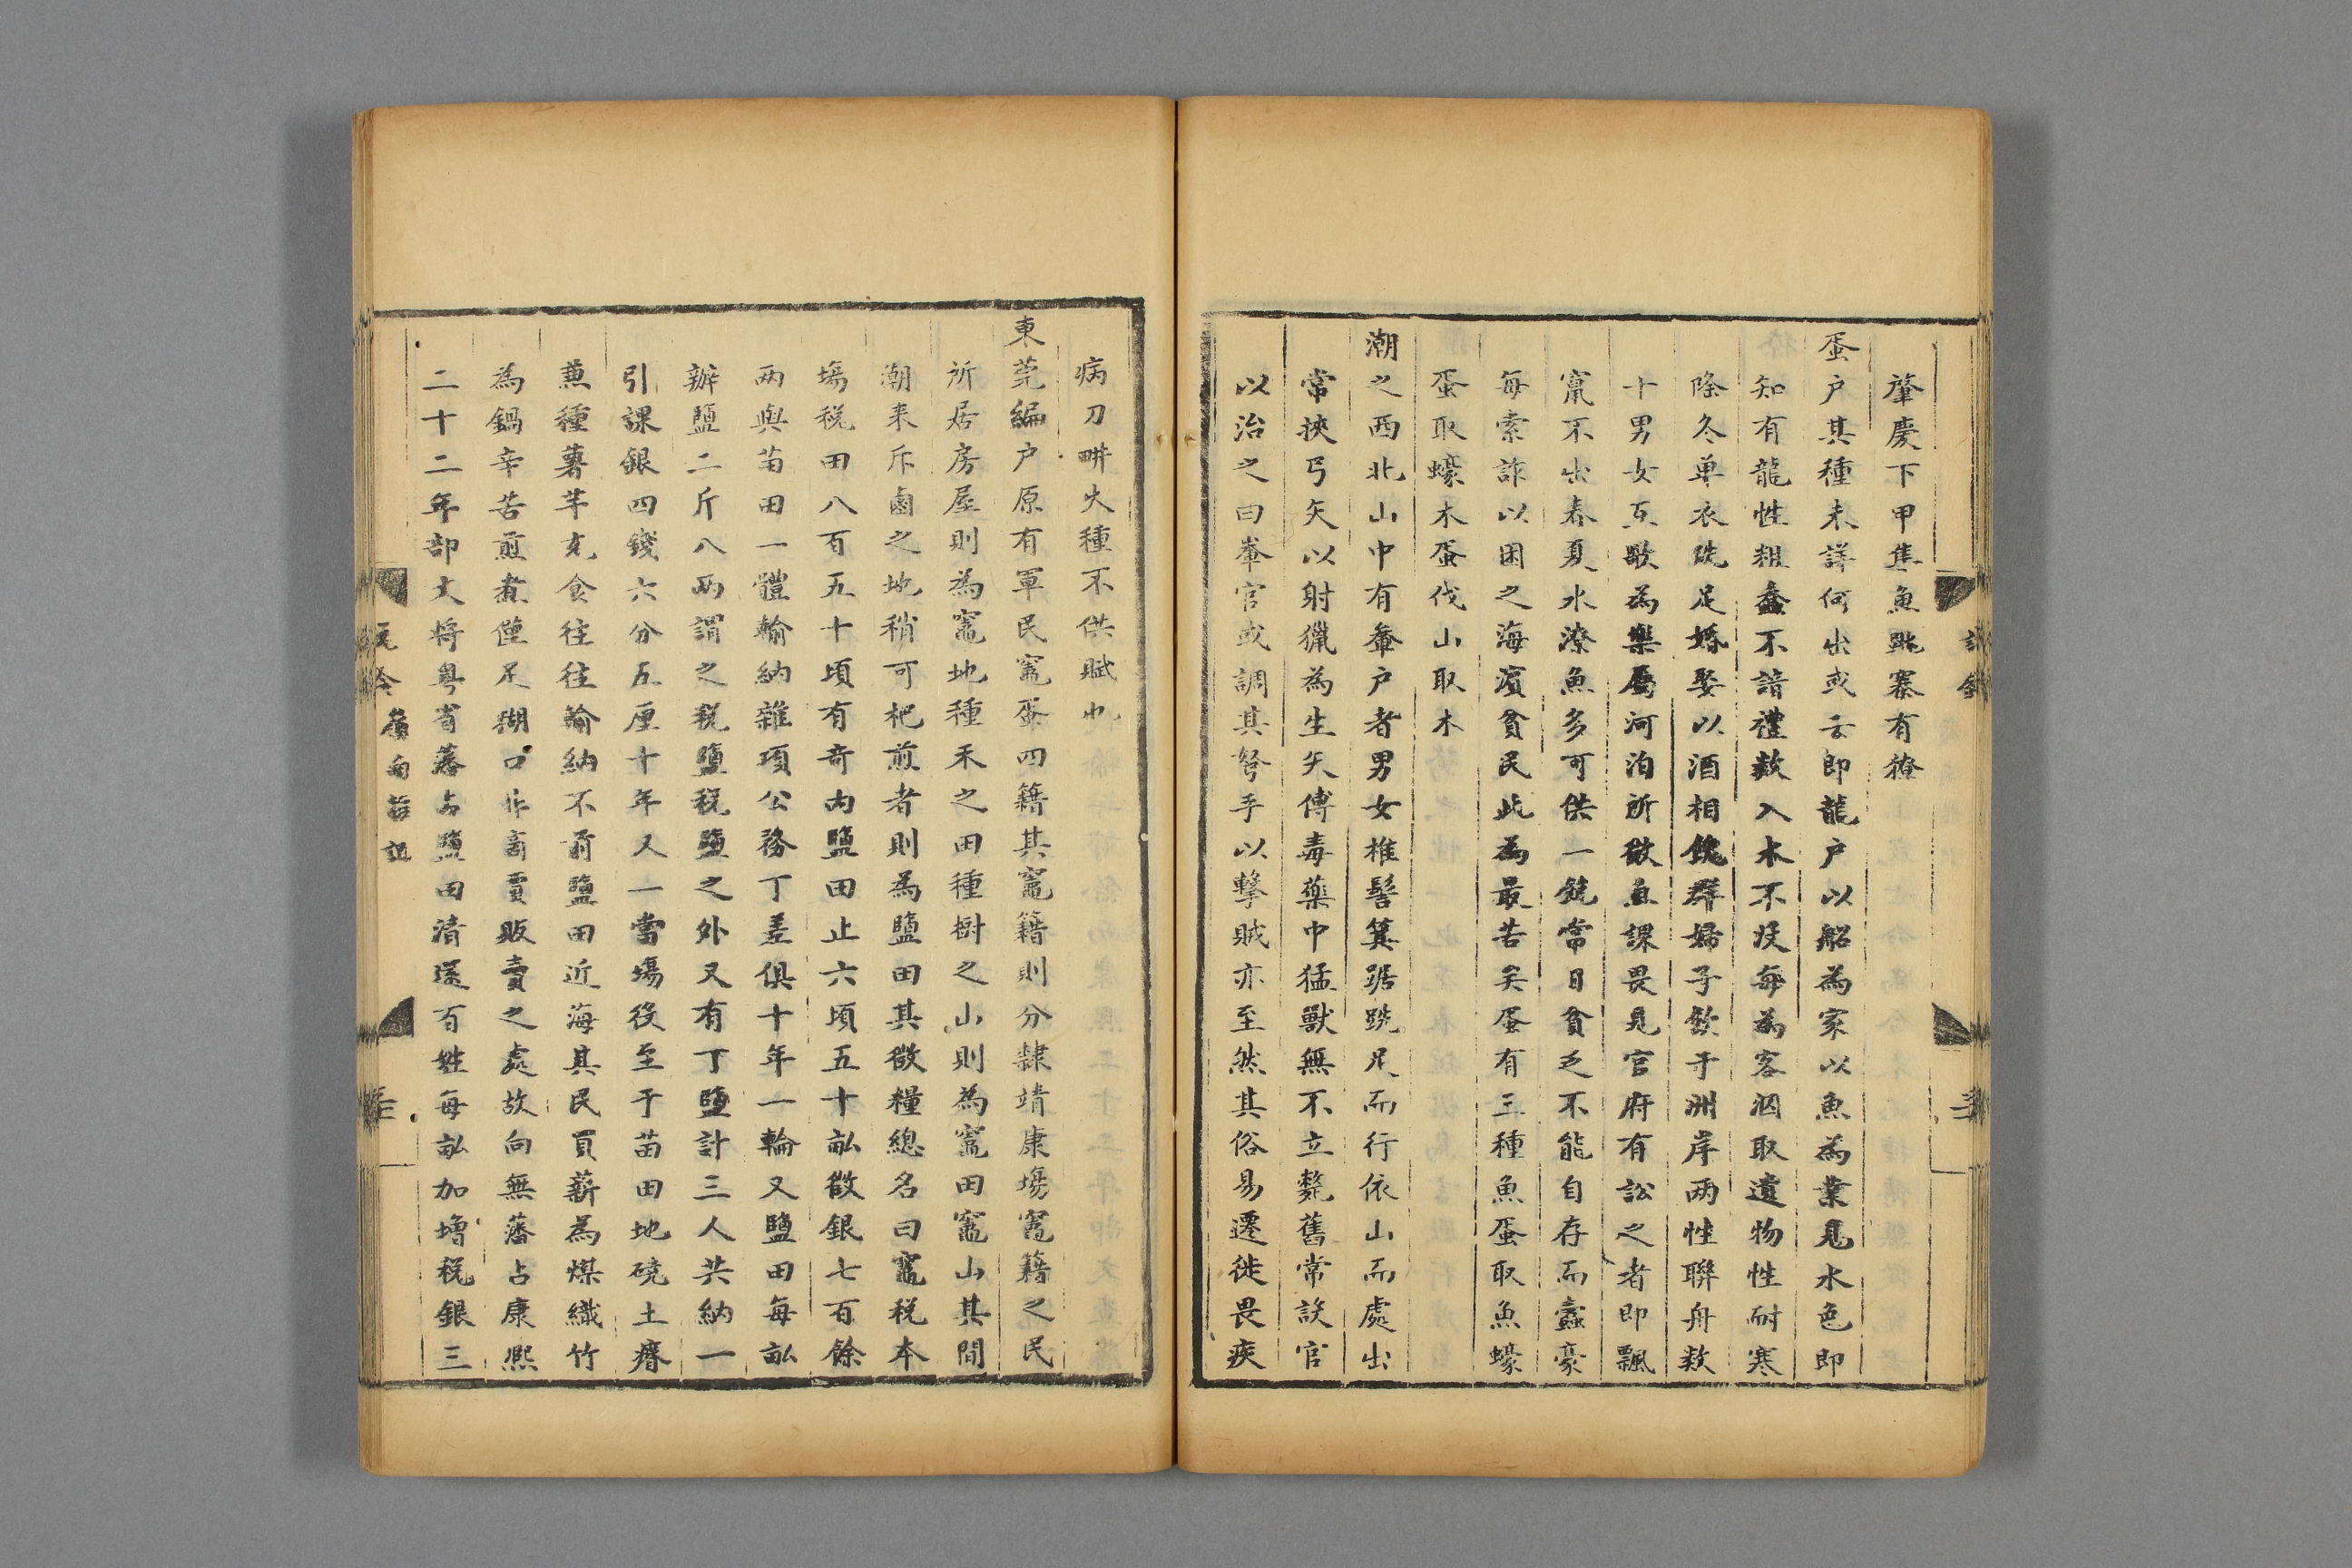 肇慶下甲隻魚跳寨有獠
蛋户其種未詳何出或云即龍户以船為家以魚為業見水色即
知有龍性粗蠢不諳禮數入水不没每為客泅取遺物性耐寒
隆冬单衣跣足婚娶以酒相餽群婦子飲于洲岸两性聨舟数
十男女互歌為樂屬河泊所徵魚課畏見官府有訟之者即飄
竄不出春夏水潦魚多可供一飽常日貧乏不能自存而蠹豪
每索詐以困之海濱貧民此為最苦矣蛋有三種魚蛋取魚蠔
蛋取蠔木蛋伐山取木
潮之西北山中有輋户者男女椎髻箕踞跣足而行依山而處出
常挾弓矢以射獵為生矢傅毒藥中猛獸無不立斃舊常設官
以治之曰輋官或調其弩手以擊賊亦至然其俗易遷徙畏疾
病刀畊火種不供賦也
東莞編户原有軍民竈蛋四籍其竈籍則分隸靖康塲竈籍之民
所居房屋則為竈地種禾之田種樹之山則為竈田竈山其間
潮来斥鹵之地稍可杷煎者則為鹽田其徵糧總名曰竈税本
塲税田八百五十頃有奇内鹽田止六頃五十畆徵銀七百餘
两與苗田一體輸納雜項公務丁差俱十年一輪又鹽田每畆
辦鹽二斤八两謂之税鹽税鹽之外又有丁鹽計三人共納一
引課銀四錢六分五厘十年又一當塲役至于苗田地磽土瘠
兼種薯芋充食往往輸納不前鹽田近海其民買薪為煤織竹
為鍋辛苦煎煮僅足糊口非商賈販賣之處故向無藩占康熙
二十二年部文將粤省藩占鹽田清還百姓每畆加增税銀三